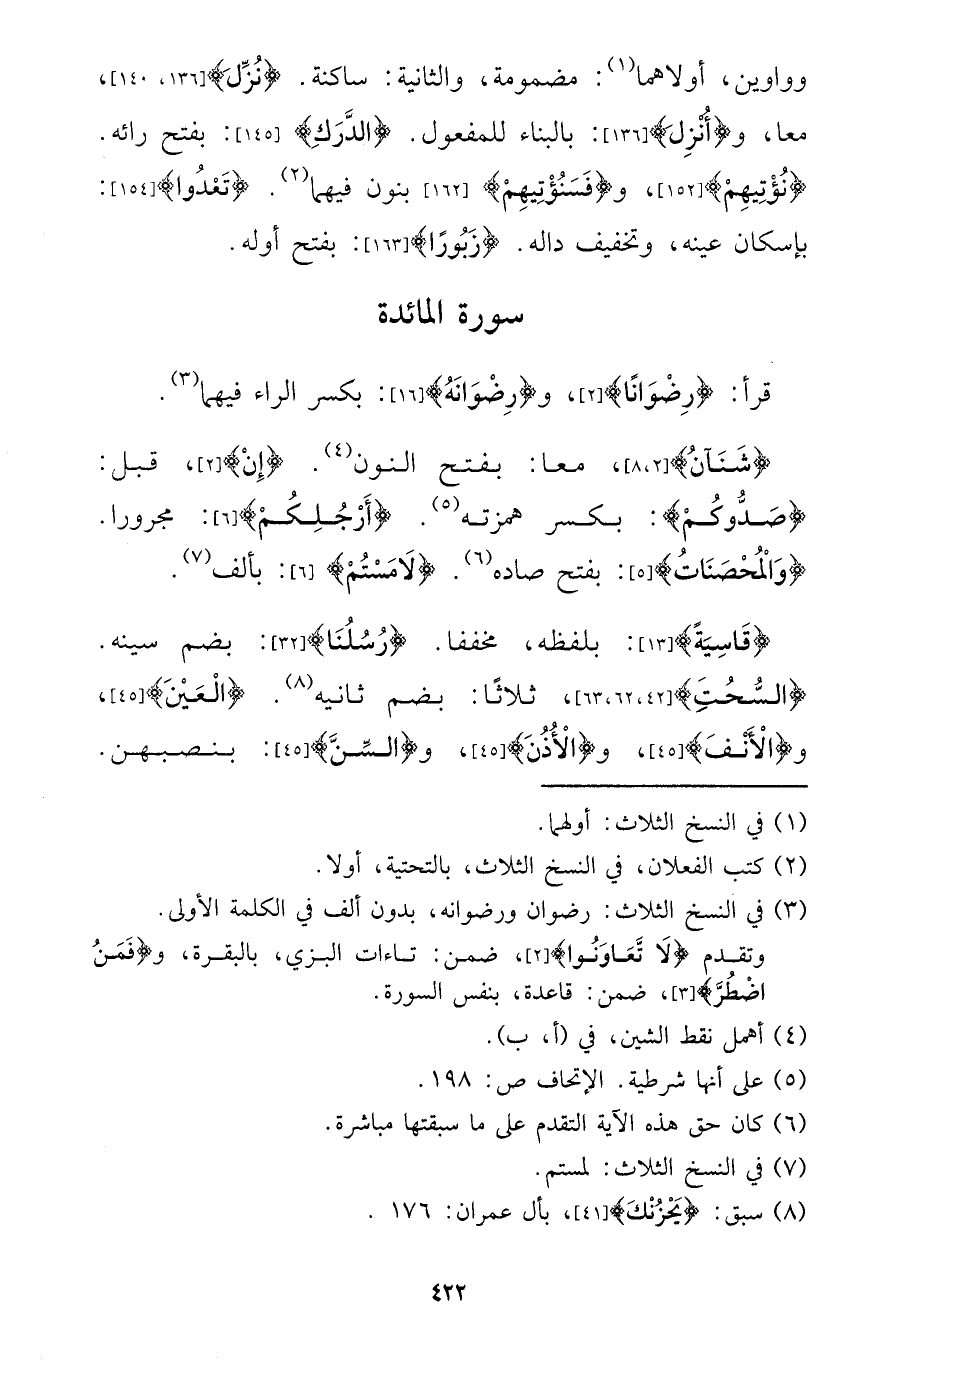 وواوين، أولاهما(١): مضمومة، والثانية: ساكنة. ﴿نُزِّلَ﴾[١٣٦، ١٤٠]،
معا، و﴿أُنْزِلَ﴾[١٣٦]: بالبناء للمفعول. ﴿الدَّرَكِ﴾ [١٤٥]: بفتح رائه.
﴿نُؤْتِيهِمْ﴾[١٥٢]، و﴿فَسَنُؤْتِيهِمْ﴾ [١٦٢] بنون فيهما(٢). ﴿تَعْدُوا﴾[١٥٤]:
بإسكان عينه، وتخفيف داله. ﴿زَبُورًا﴾[١٦٣]: بفتح أوله.
سورة المائدة
قرأ: ﴿رِضْوَانًا﴾[٢]، و﴿رِضْوَانَهُ﴾[١٦]: بكسر الراء فيهما(٣).
﴿شَنَآنُ﴾[٨،٢]، معا: بفتح النون(٤). ﴿إِنْ﴾[٢]، قبل:
﴿صَدُّوكُمْ﴾: بكسر همزته(٥). ﴿أَرْجُلِكُمْ﴾[٦]: مجرورا.
﴿وَالْمُحْصَنَاتُ﴾[٥]: بفتح صاده(٦). ﴿لَامَسْتُمْ﴾ [٦]: بألف(٧).
﴿قَاسِيَةً﴾[١٣]: بلفظه، مخففا. ﴿رُسُلُنَا﴾[٣٢]: بضم سينه.
﴿السُّحُتَ﴾[٦٣،٦٢،٤٢]، ثلاثًا: بضم ثانيه(٨). ﴿الْعَيْنَ﴾[٤٥]،
و﴿الْأَنْفَ﴾[٤٥]، و﴿الْأُذُنَ﴾[٤٥]، و﴿السِّنَّ﴾[٤٥]: بنصبهن.
(١) في النسخ الثلاث: أولهما.
(٢) كتب الفعلان، في النسخ الثلاث، بالتحتية، أولا.
(٣) في النسخ الثلاث: رضوان ورضوانه، بدون ألف في الكلمة الأولى.
وتقدم ﴿لَا تَّعَاوَنُوا﴾[٢]، ضمن: تاءات البزي، بالبقرة، و﴿فَمَنُ
اضْطُرَّ﴾[٣]، ضمن: قاعدة، بنفس السورة.
(٤) أهمل نقط الشين، في (أ، ب).
(٥) على أنها شرطية. الإتحاف ص: ١٩٨.
(٦) كان حق هذه الآية التقدم على ما سبقتها مباشرة.
(٧) في النسخ الثلاث: لمستم.
(٨) سبق: ﴿يَحْزُنْكَ﴾[٤١]، بأل عمران: ١٧٦.
٤٢٢